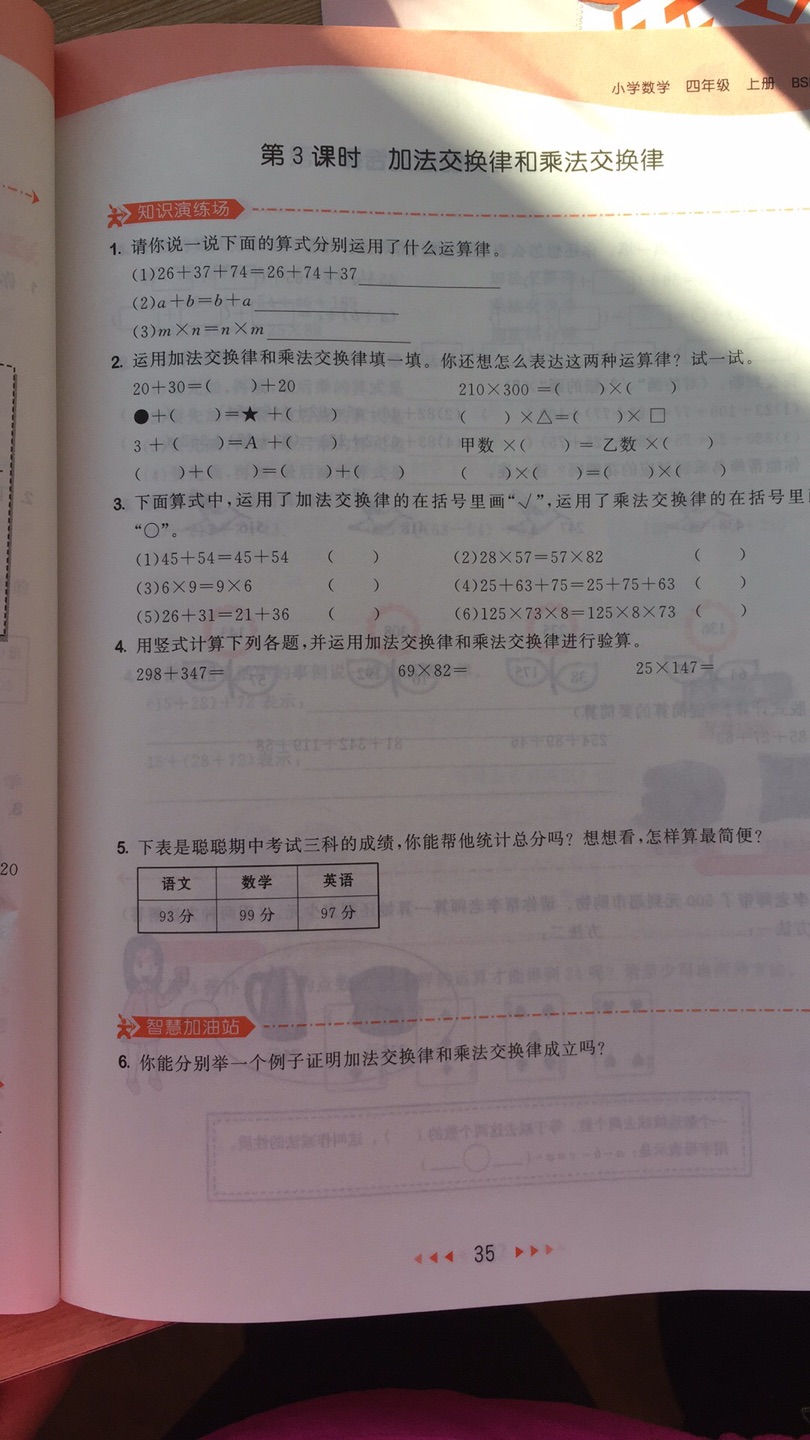 小学数学 四年级 上册 BS
第3课时 加法交换律和乘法交换律
知识演练场
1. 请你说一说下面的算式分别运用了什么运算律。
(1)26+37+74=26+74+37
(2)a+b=b+a
(3)m×n=n×m
2. 运用加法交换律和乘法交换律填一填。你还想怎么表达这两种运算律？试一试。
20+30=( )+20 210×300 =( )×( )
●+( )=★+( ) ( )×△=( )×□
3+( )=A+( ) 甲数×( )=乙数×( )
( )+( )=( )+( ) ( )×( )=( )×( )
3. 下面算式中，运用了加法交换律的在括号里画“√”，运用了乘法交换律的在括号里
“○”。
(1)45+54=45+54 ( ) (2)28×57=57×82 ( )
(3)6×9=9×6 ( ) (4)25+63+75=25+75+63 ( )
(5)26+31=21+36 ( ) (6)125×73×8=125×8×73 ( )
4. 用竖式计算下列各题，并运用加法交换律和乘法交换律进行验算。
298+347= 69×82= 25×147=
5. 下表是聪聪期中考试三科的成绩，你能帮他统计总分吗？想想看，怎样算最简便？
语文 数学 英语
93分 99分 97分
智慧加油站
6. 你能分别举一个例子证明加法交换律和乘法交换律成立吗？
35
20